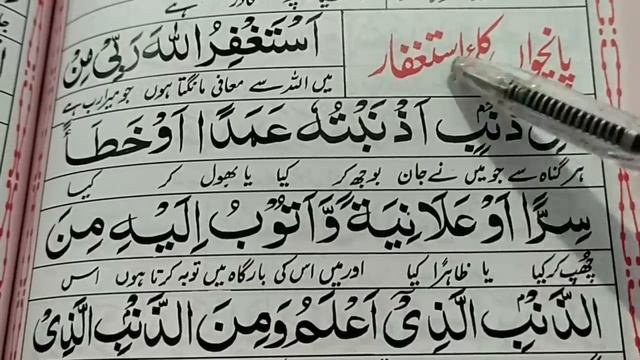 پانچواں کلمۂ استغفار
اَسْتَغْفِرُ اللهَ رَبِّیْ مِنْ
میں اللہ سے معافی مانگتا ہوں جو میرا رب ہے
ذَنْۢبٍ اَذْنَبْتُهٗ عَمَدًا اَوْ خَطَأً
ہر گناہ سے جو میں نے جان بوجھ کر کیا یا بھول کر کیا
سِرًّا اَوْ عَلَانِیَةً وَّاَتُوْبُ اِلَیْهِ مِنَ
چُھپ کر کیا یا ظاہرًا کیا اور میں اس کی بارگاہ میں توبہ کرتا ہوں اس
الذَّنْۢبِ الَّذِیْۤ اَعْلَمُ وَمِنَ الذَّنْۢبِ الَّذِیْ